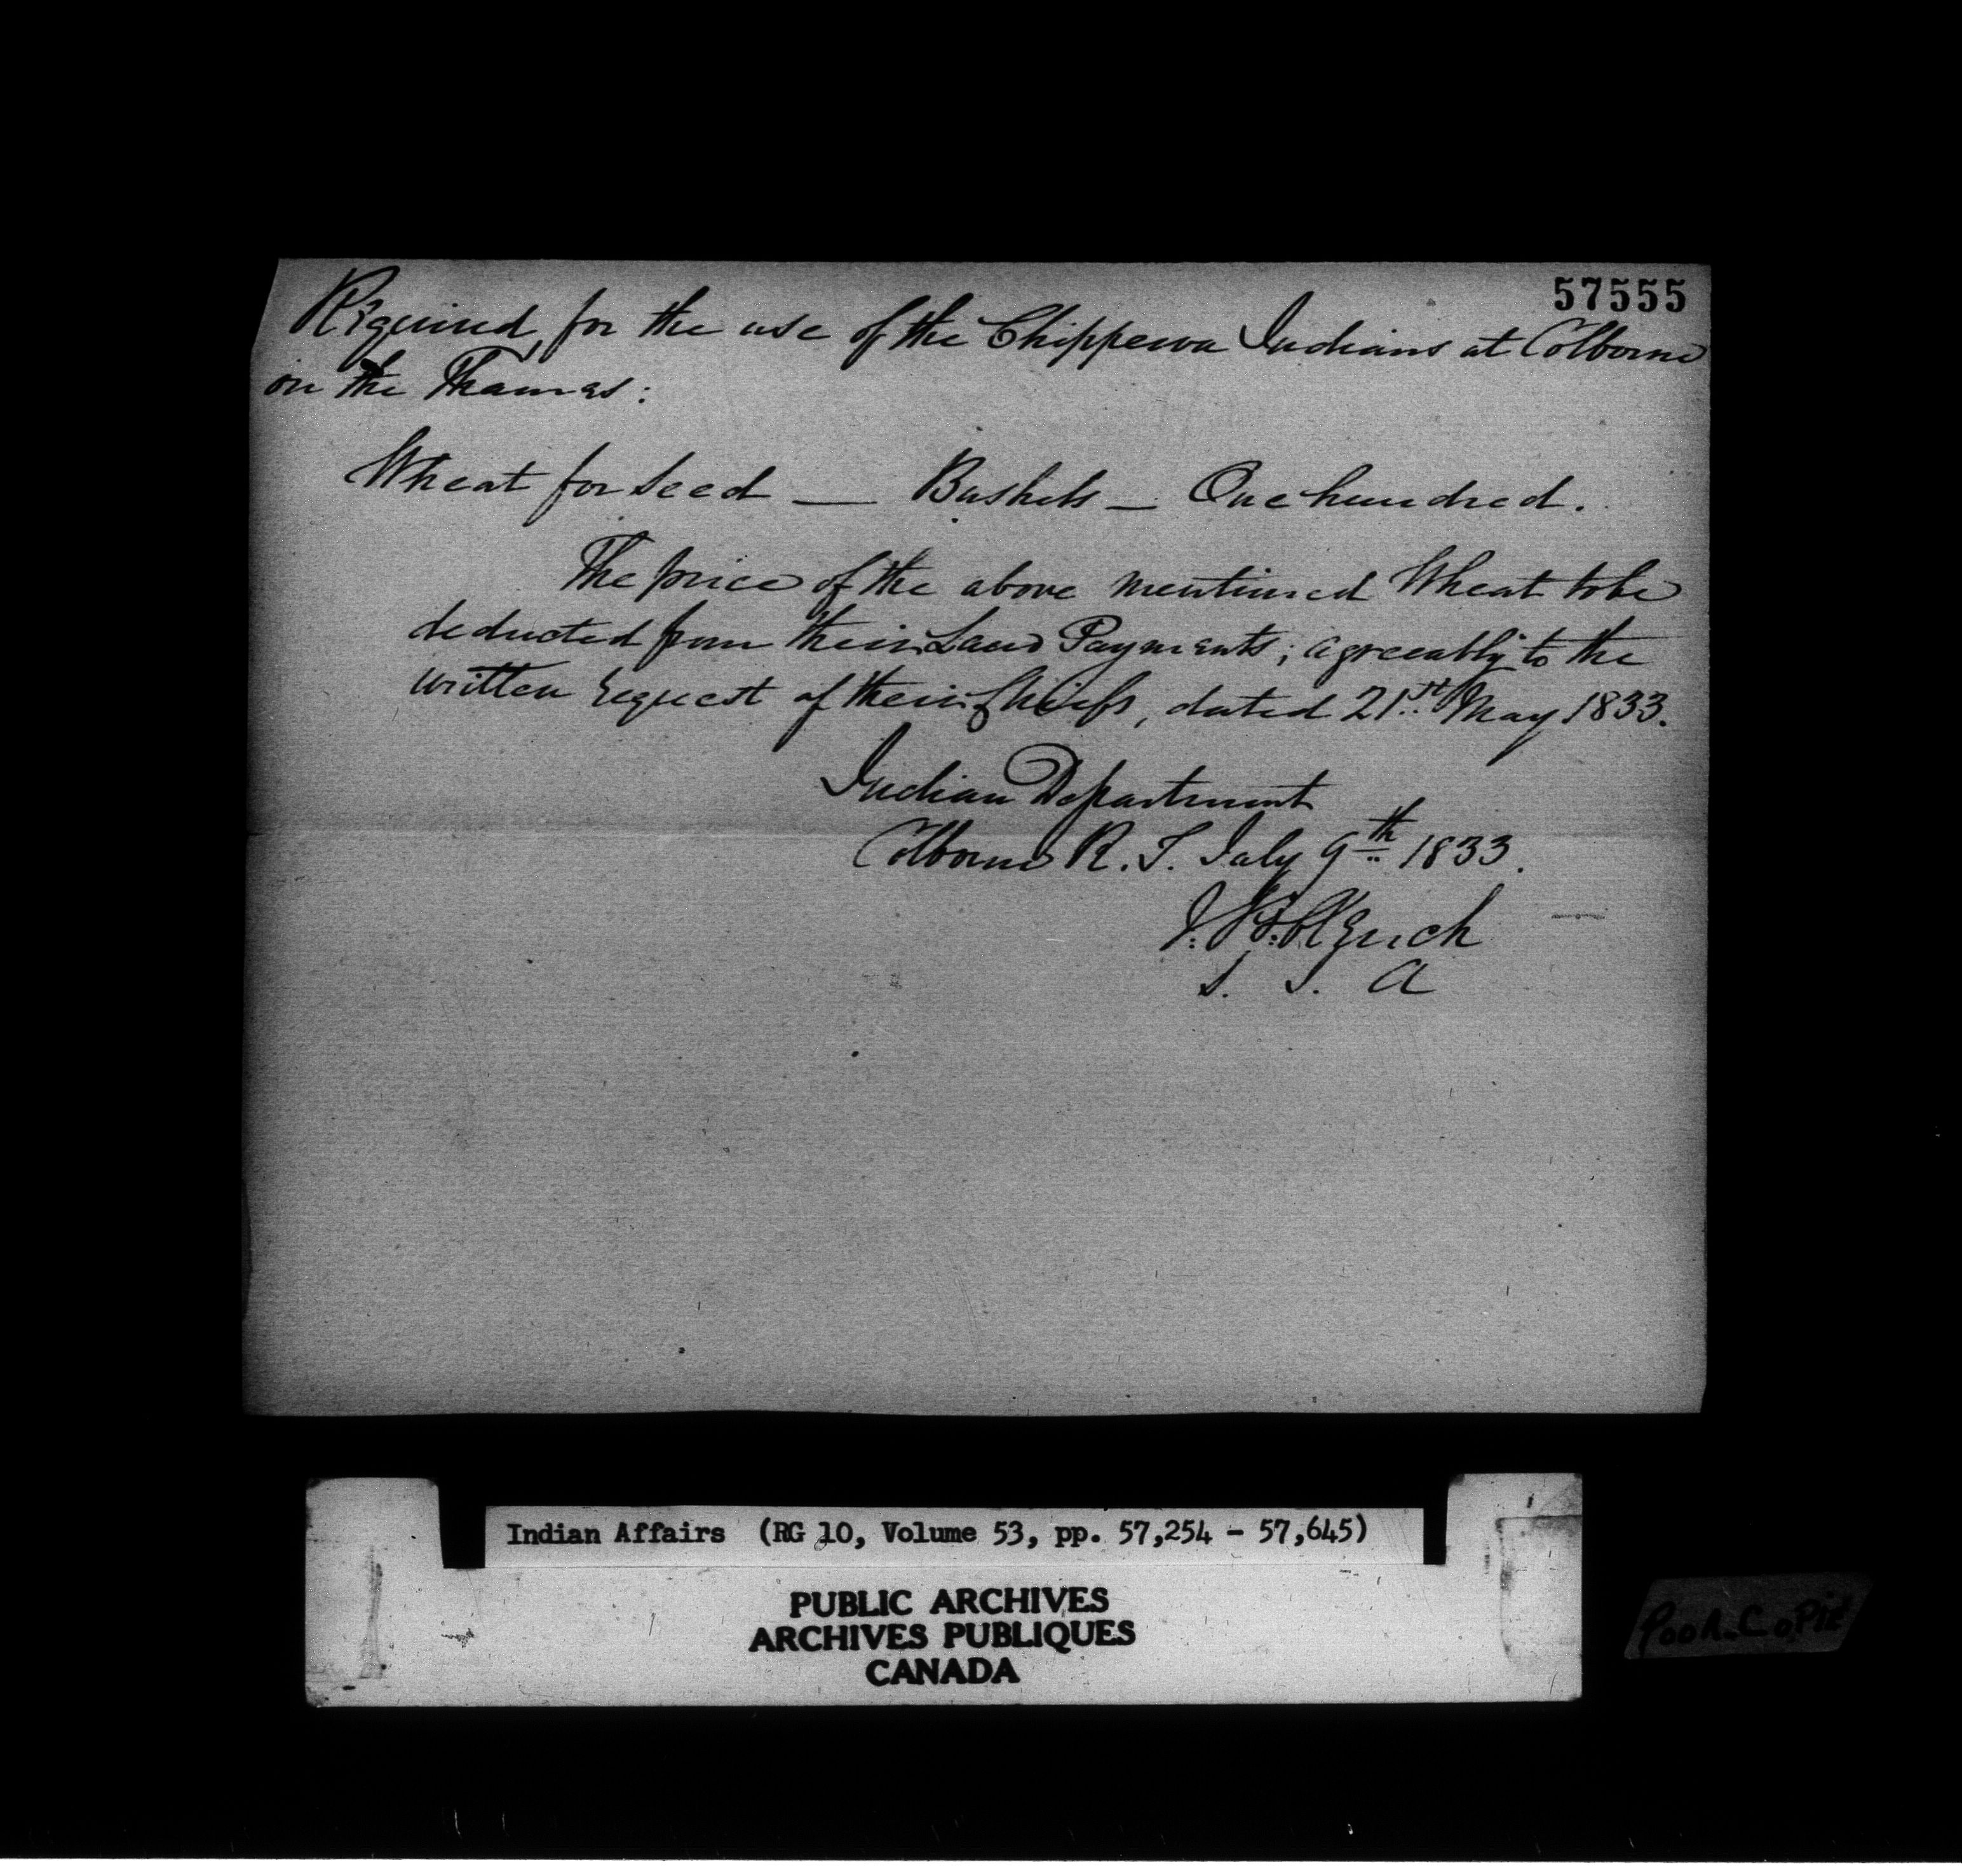 57555
Required for the use of the Chippewa Indians at Colborne
on the Thames:
Wheat for seed — Bushels — One hundred.
The price of the above mentioned Wheat to be
deducted from their Land Payments; agreeably to the
written request of their Chiefs, dated 21st May 1833.
Indian Department
Colborne R. T. July 9th 1833.
J: B: Clench
S. I. A
Indian Affairs (RG 10, Volume 53, pp. 57,254 - 57,645)
PUBLIC ARCHIVES
ARCHIVES PUBLIQUES
CANADA
POOR COPIE